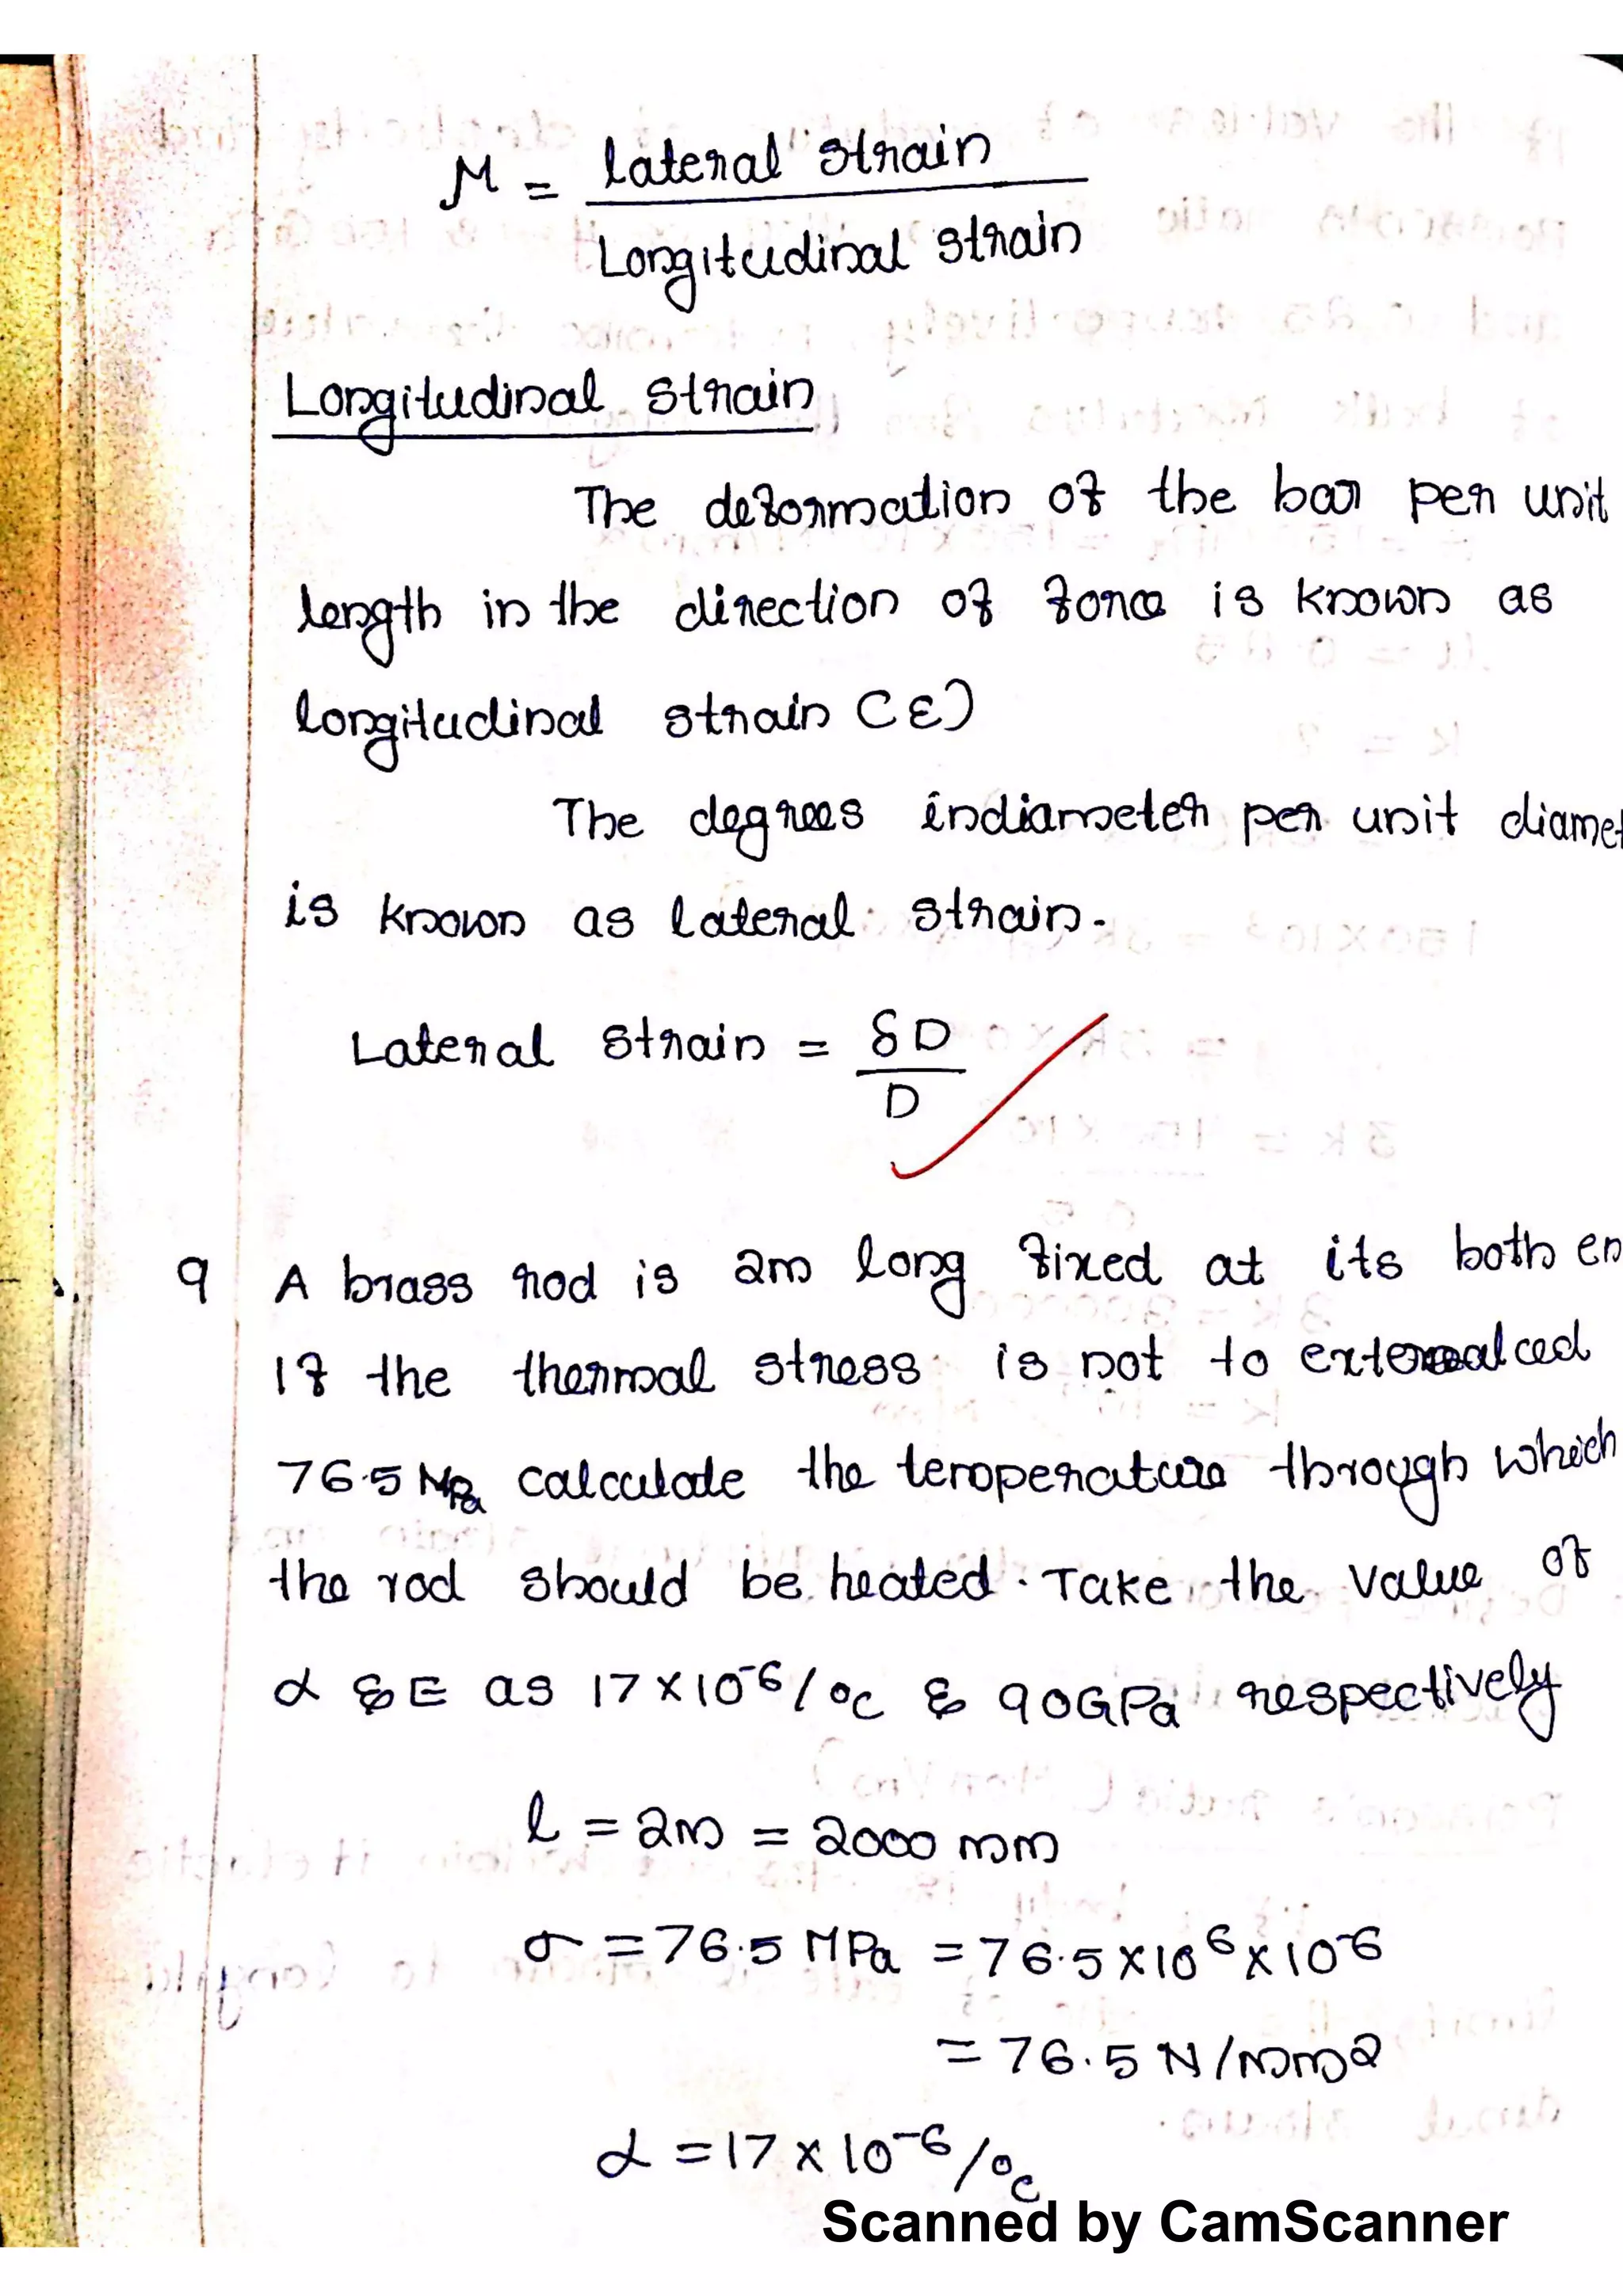 μ = lateral strain
Longitudinal strain
Longitudinal strain
The deformation of the bar per unit
length in the direction of force is known as
longitudinal strain (ε)
The degrees indiameter per unit diamet
is known as lateral strain.
Lateral strain = δD
D
9 A brass rod is 2m long fixed at its both en
If the thermal stress is not to
76.5 MPa calculate the temperature through which
the rod should be heated. Take the value of
α & E as 17×10⁻⁶/°c & 90GPa respectively
l = 2m = 2000 mm
σ = 76.5 MPa = 76.5×10⁶×10⁻⁶
= 76.5 N/mm2
α = 17×10⁻⁶/°c
Scanned by CamScanner